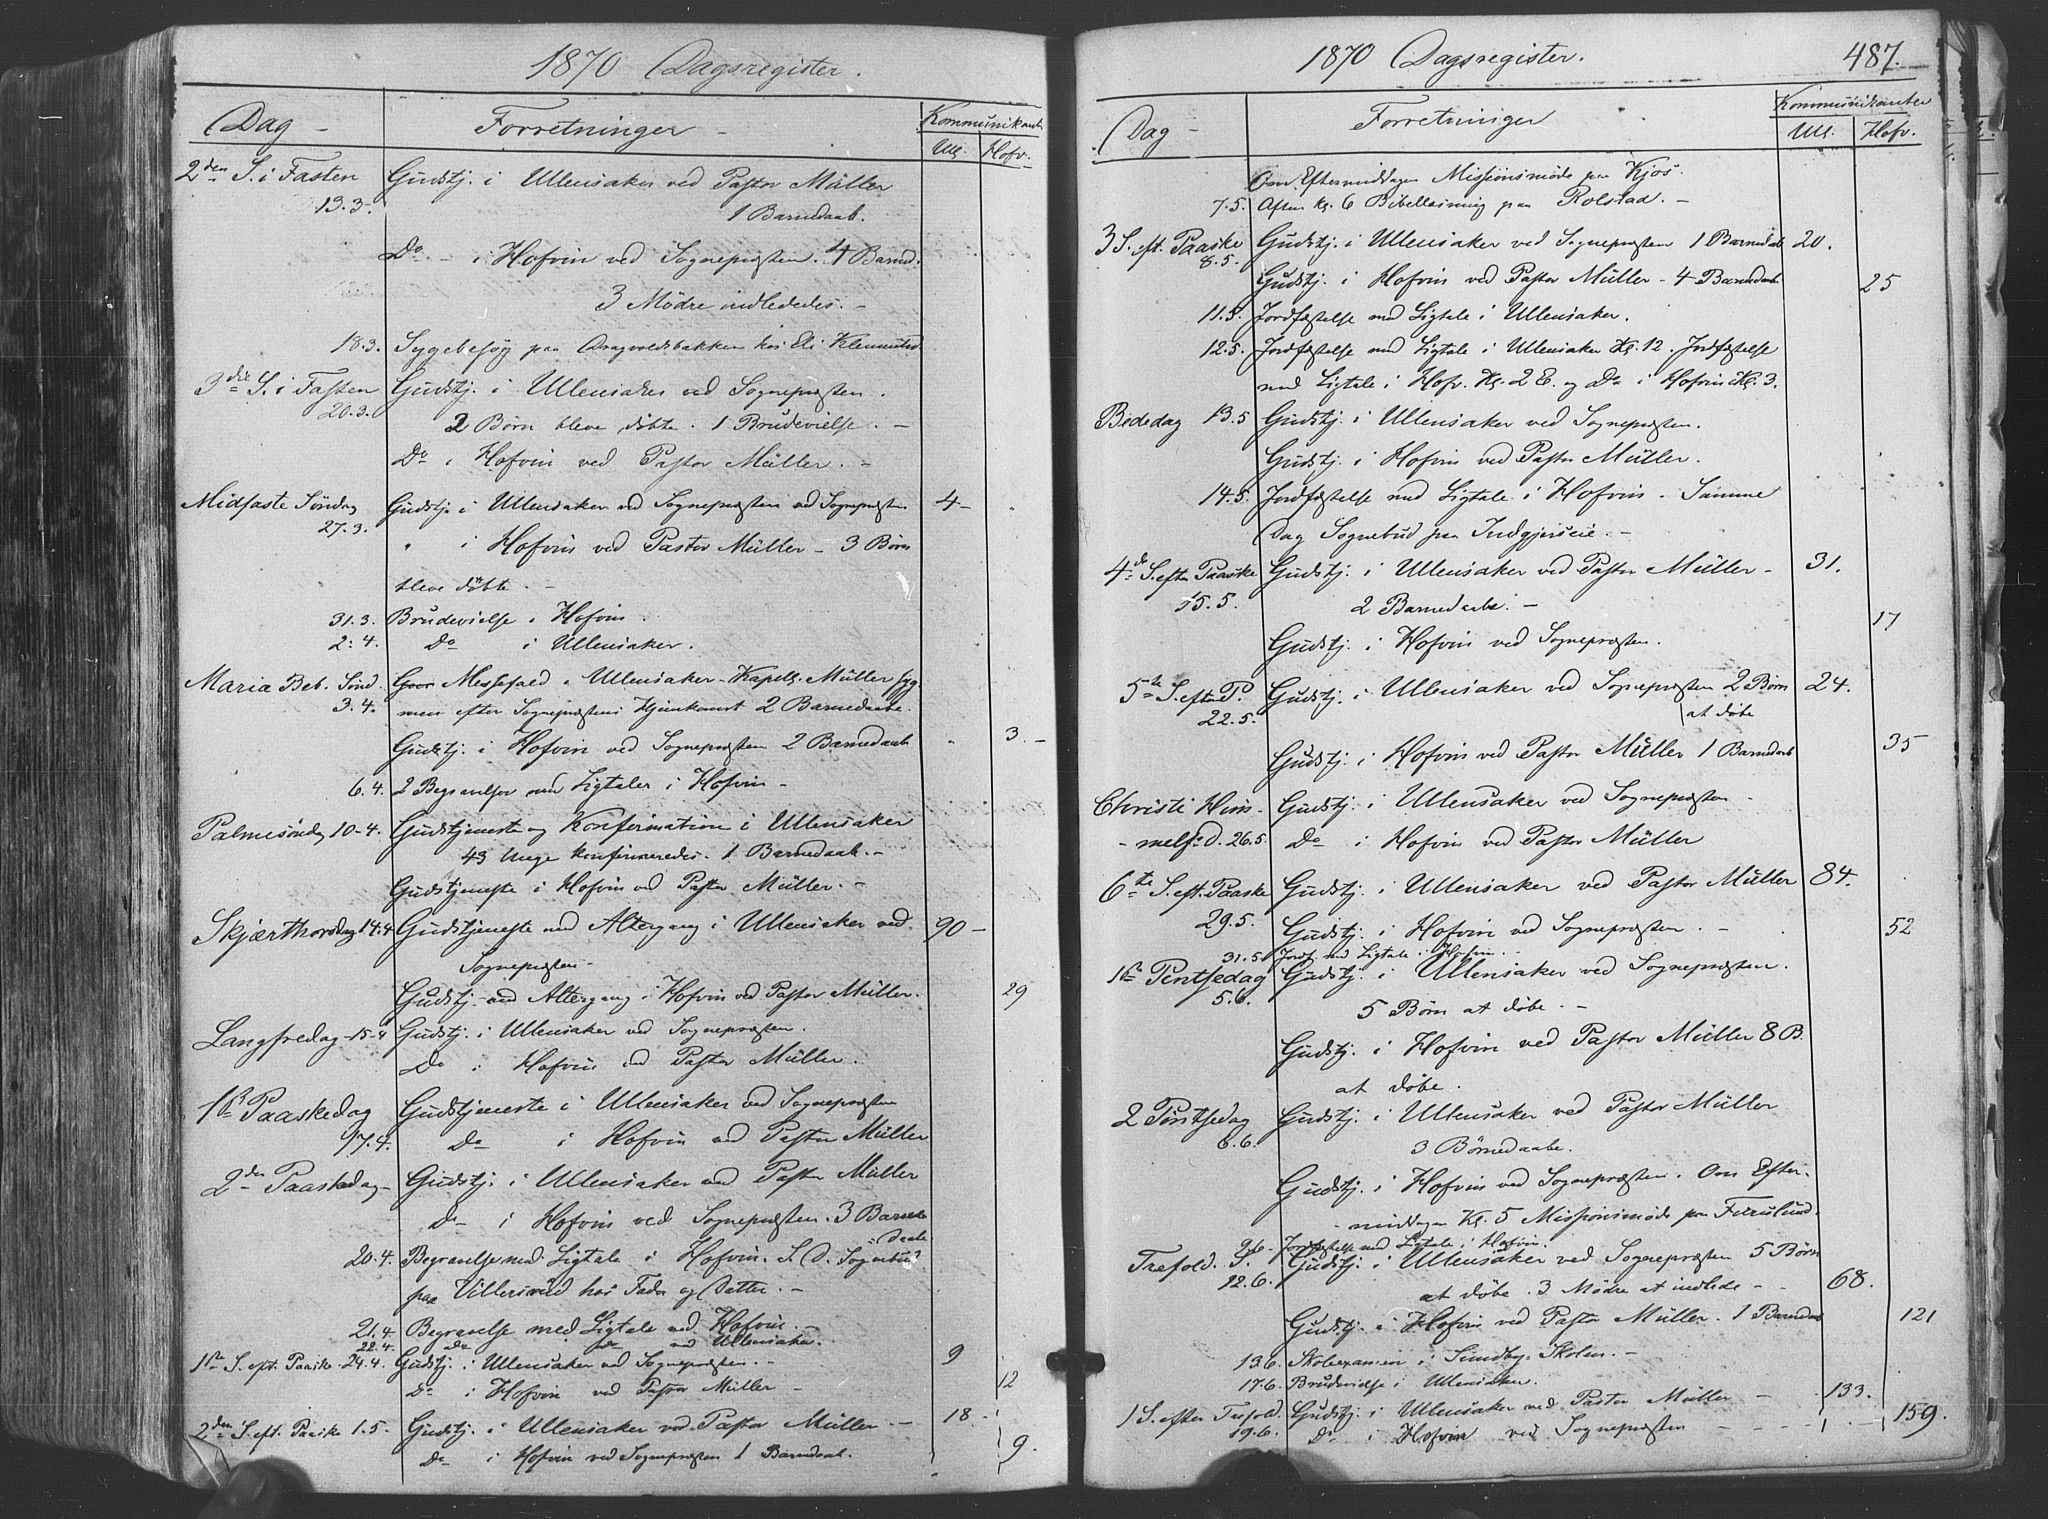 1870 Dagsregister.
Dag - Forretninger - Kommunikant
Ull. Hofv.
2den S. i Fasten Gudstj. i Ullensaker ved Pastor Müller
13.3. 1 Barnedaab.
Do - i Hofvin ved Sognepræsten. 4 Barned.
3 Mødre indlededes. -
18.3. Sygebesøg paa Dragvoldsbakken hos Eli
3die S. i Fasten Gudstj. i Ullensaker ved Sognepræsten.
20.3. 2 Børn bleve døbte. 1 Brudevielse. -
Do i Hofvin ved Pastor Müller. -
Midfaste Søndag Gudstj. i Ullensaker ved Sognepræsten ved Sognepræsten 4 -
27.3. " i Hofvin ved Pastor Müller - 3 Børn
bleve døbte. -
31.3. Brudevielse i Hofvin.
2.4. Do i Ullensaker.
Maria Beb. Sønd. Messefald i Ullensaker - Kapell. Müller syg
3.4. men efter Sognepræstens Hjemkomst 2 Barnedaabe.
Gudstj. i Hofvin ved Sognepræsten 2 Barnedaab " 3. -
6.4. 2 Begravelser med Ligtaler i Hofvin -
Palmesøndag 10-4. Gudstjeneste og Konfirmation i Ullensaker
43 Unge konfirmeredes. 1 Barnedaab. -
Gudstjeneste i Hofvin ved Pastor Müller. -
Skjærthorsdag 14.4 Gudstjeneste med Altergang i Ullensaker ved 90 -
Sognepræsten -
Gudstj. med Altergang i Hofvin ved Pastor Müller. 29
Langfredag - 15-4 Gudstj. i Ullensaker ved Sognepræsten.
Do i Hofvin ved Pastor Müller.
1ste Paaskedag Gudstjeneste i Ullensaker ved Sognepræsten
17.4. Do i Hofvin ved Pastor Müller
2den Paaskedag - Gudstj. i Ullensaker ved Pastor Müller
Do - i Hofvin ved Sognepræsten. 3 Barne
daabe
20.4. Begravelse med Ligtale i Hofvin. S. D. Sognebud
paa hos Fader og Datter. -
21.4. Begravelse med Ligtale ved Hofvin. -
22.4. do do ved Ullensaker.
1ste S. eft. Paaske 24.4. Gudstj. i Ullensaker ved Sognepræsten. - 9
Do i Hofvin ved Pastor Müller - 12
2den S. eft. Paaske 1.5. Gudstj. i Ullensaker ved Pastor Müller. - 18
Do - i Hofvin ved Sognepræsten 1 Barnedaab. 9.
1870 Dagsregister. 487.
Dag - Forretninger Kommunikanter
Ull. Hofv.
Om Eftermiddagen Missionsmøde paa Kjos.
7.5. Aften Kl. 6 Bibellæsning paa Rolstad. -
3 S. eft. Paaske Gudstj. i Ullensaker ved Sognepræsten 1 Barnedab 20.
8.5.
Gudstj. i Hofvin ved Pastor Müller - 4 Barnedaab 25
11.5. Jordfæstelse med Ligtale i Ullensaker.
12.5. Jordfæstelse med Ligtale i Ullensaker Kl. 12. Jordfæstelse
med Ligtale i Hofv. Kl. 2 E. og Do i Hofvin Kl. 3.
Bededag 13.5 Gudstj. i Ullensaker ved Sognepræsten.
Gudstj. i Hofvin ved Pastor Müller.
14.5. Jordfæstelse med Ligtale i Hofvin. Samme
Dag Sognebud paa -
4de S. efter Paaske Gudstj. i Ullensaker ved Pastor Müller - 31.
15.5. 2 Barnedaabe. -
Gudstj. i Hofvin ved Sognepræsten. 17
5te S. efter P. Gudstj. i Ullensaker ved Sognepræsten 2 Børn 24.
22.5. at døbe
Gudstj. i Hofvin ved Pastor Müller 1 Barnedaab 35
Christi Him- Gudstj. i Ullensaker ved Sognepræsten -
- melf. D. 26.5. Do i Hofvin ved Pastor Müller
6te S. eft. Paaske Gudstj. i Ullensaker ved Pastor Müller 84.
29.5. Gudstj. i Hofvin ved Sognepræsten. - 52
31.5 Jordf. med Ligtale i Hofvin.
1ste Pintsedag Gudstj. i Ullensaker ved Sognepræsten.
5.6. 5 Børn at døbe. -
Gudstj. i Hofvin ved Pastor Müller 8 B.
at døbe.
2 Pintsedag Gudstj. i Ullensaker ved Pastor Müller
6.6. 3 Børnedaabe.
Gudstj. i Hofvin ved Sognepræsten. Om Efter-
- middagen Kl. 5 Missionsmøde paa Furulund.
9.6 - Jordfæstelse med Ligtale i Hofvin.
Trefold. S. Gudstj. i Ullensaker ved Sognepræsten 5 Børn
12.6. at døbe. 3 Mødre at indlede - 68.
Gudstj. i Hofvin ved Pastor Müller. 1 Barnedaab 121
13.6. Skoleexamen i Sundby Skolen. -
17.6. Brudevielse i Ullensaker.
1 S. efter Trefold. Gudstj. i Ullensaker ved Pastor Müller - 133.
19.6. Do i Hofvin ved Sognepræsten - - - 159.